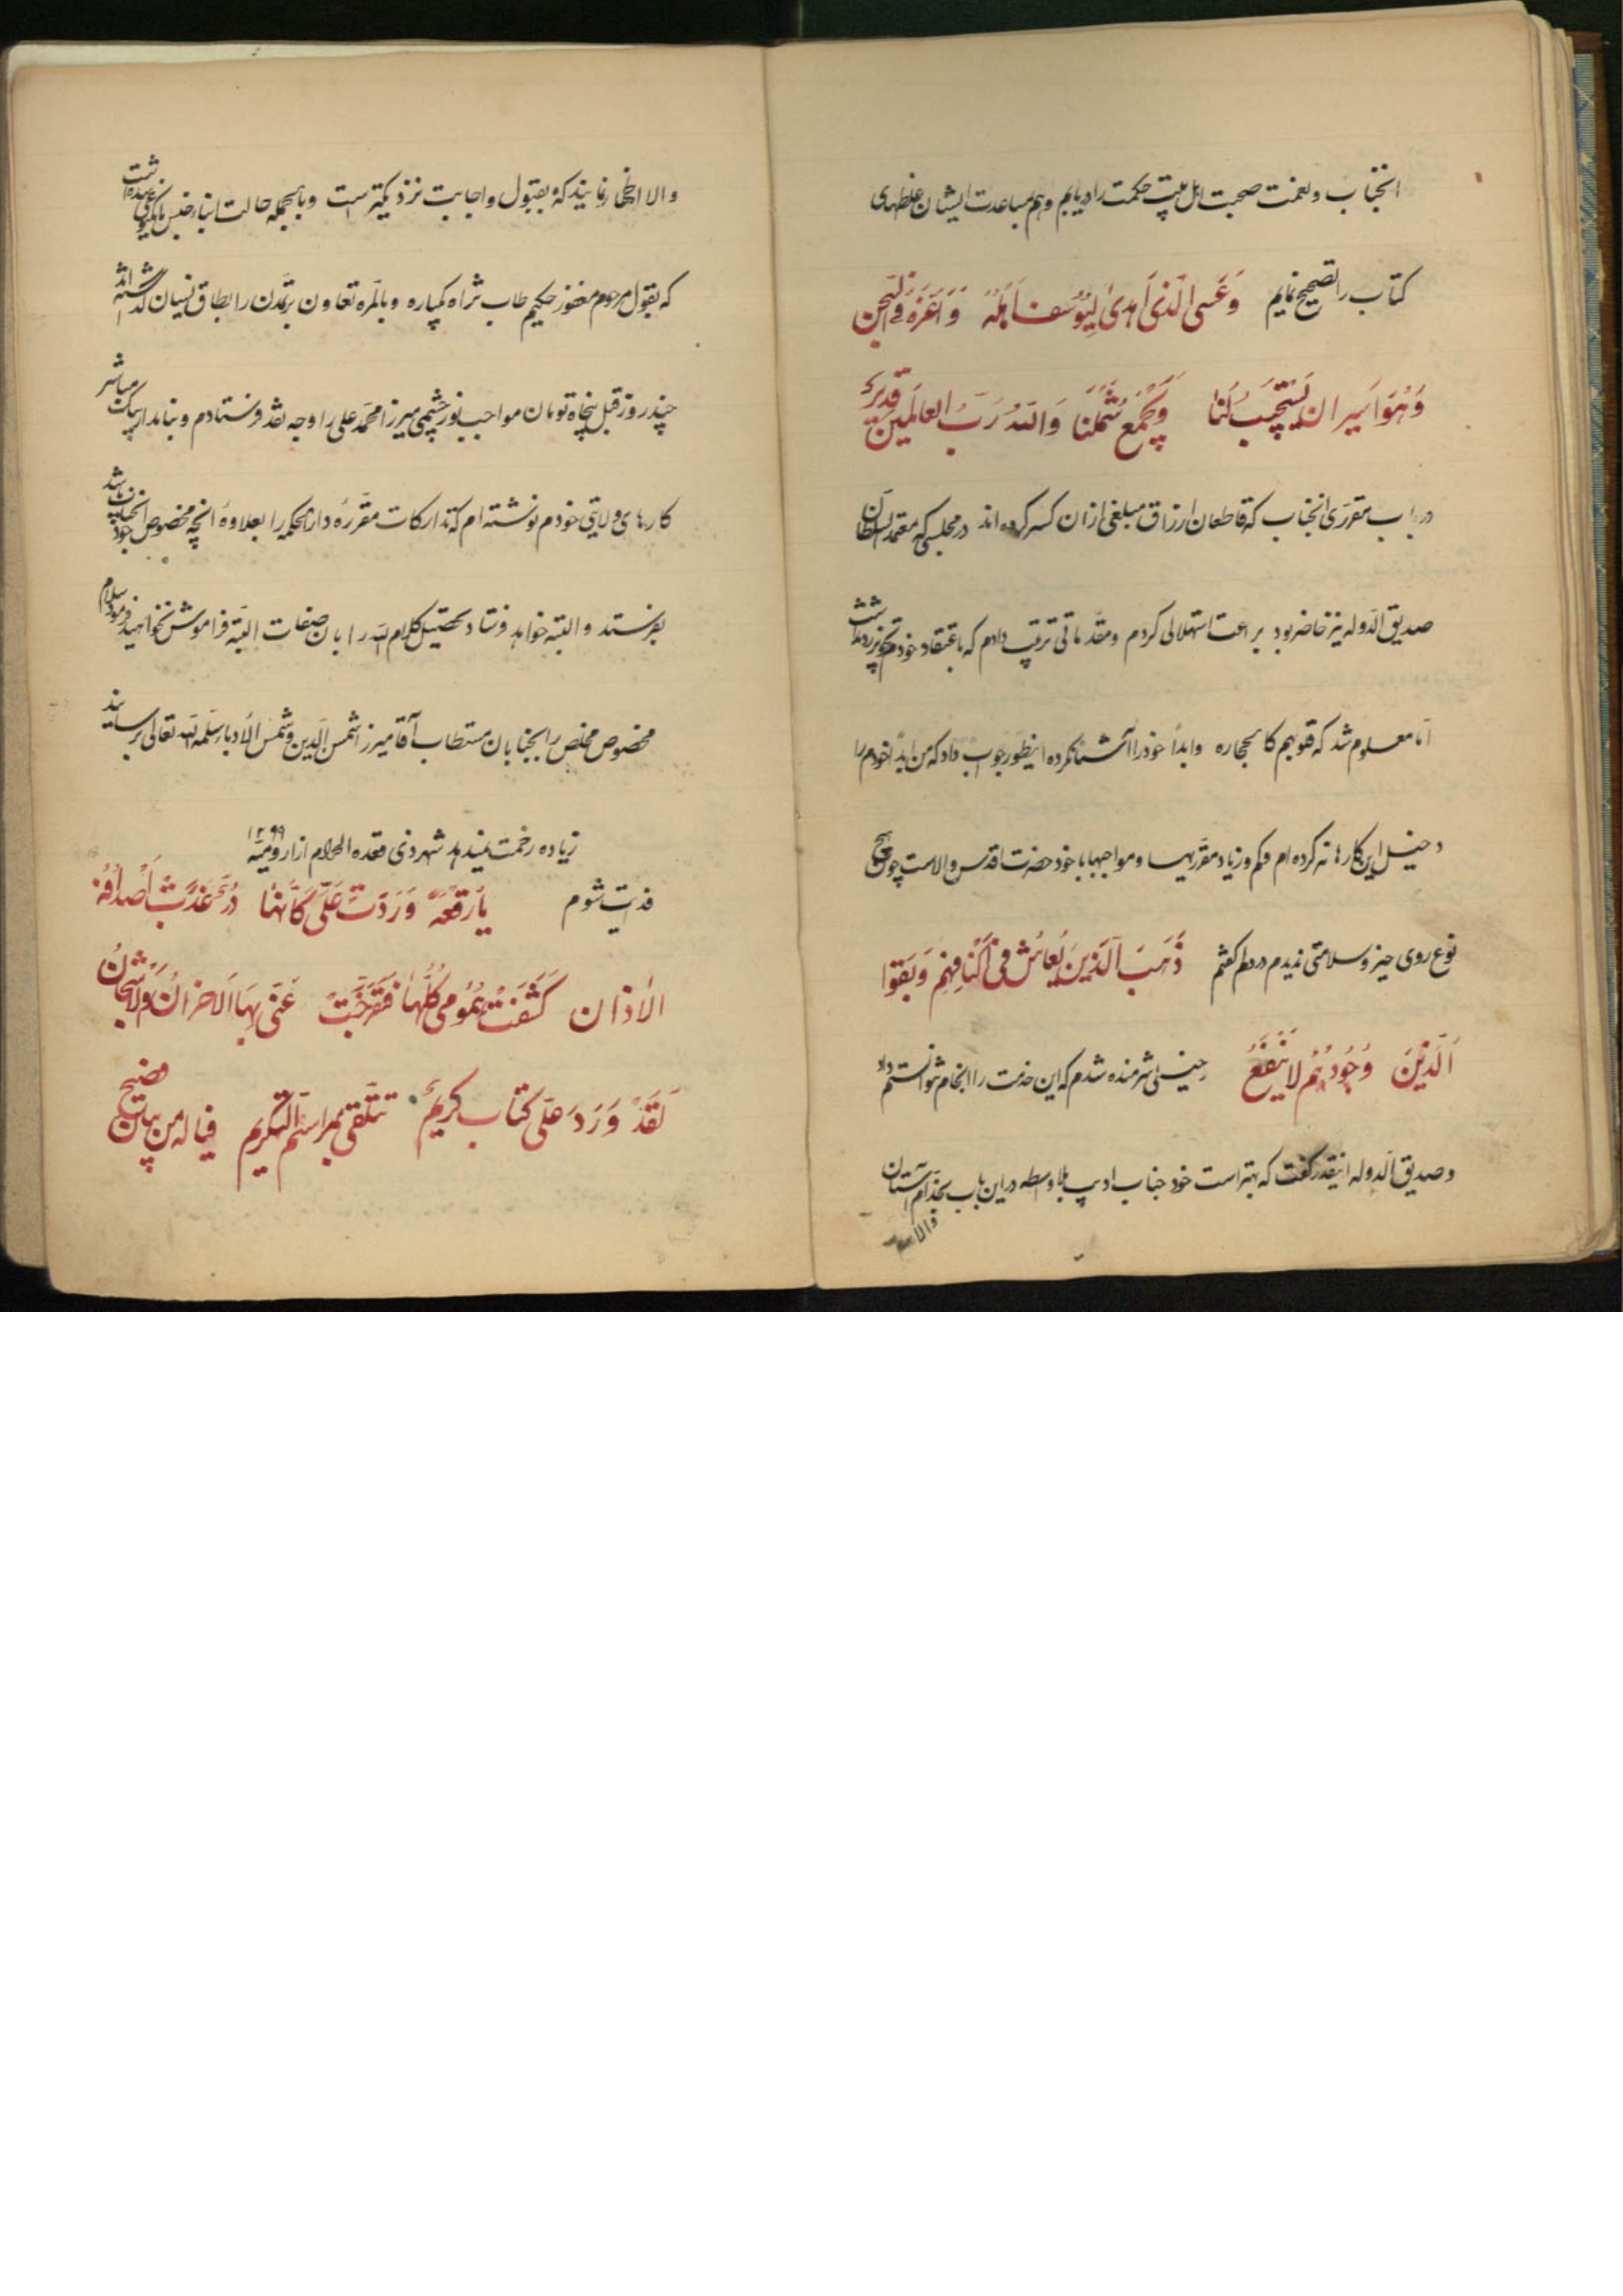 انجناب و نعمت صحبت اهل بیت حکمت را دریابم و هم بمساعدت ایشان غلطهای
کتاب را تصحیح نمایم وَعَسَی الَّذی اَهدیٰ لِیُوسُفَ اَهْلَهُ وَ اَعَزَّهُ فِی السِّجن
وَهُوَ اَسیر ان یَسْتَجیبَ لَنا وَیَجْمَعَ شَمْلَنا وَاللهُ رَبُّ العالَمینَ قَدیرٌ
در باب مقرری انجناب که قاطعان ارزاق مبلغی ازان کسر کرده اند در مجلسی که معتمد السلطان
صدیق الدوله نیز حاضر بود براعت استهلالی کردم و مقدماتی ترتیب دادم که باعتقاد خودم تجویز رد نداشت
امّا معلوم شد که قلوبهم کالحجاره وابداً خود را آشنا نکرده اینطور جواب داد که من ابداً خودم را
دخیل این کارها نه کرده ام و کم و زیاد مقرریها و مواجبها با خود حضرت اقدس والاست چون هیچ
نوع روی خیر و سلامتی ندیدم در دلم گفتم ذَهَبَ الَّذینَ یُعاشُ فی اَکْنافِهِم وَبَقُوا
اَلَّذینَ وُجُودُهُم لا یَنْفَعُ خیلی شرمنده شدم که این خدمت را انجام نتوانستم داد
و صدیق الدوله اینقدر گفت که بهتر است خود جناب ادیب بلاواسطه در این باب بخدّام آستان
والا
والا اظهار نمایند که بقبول و اجابت نزدیکتر است و بالجمله حالت ابنای جنس
که بقول مرحوم مغفور حکیم طاب ثراه یکباره و بالمره تعاون بر تمدن را بطاق نسیان گذاشته اند
چند روز قبل پنجاه تومان مواجب نورچشمی میرزا محمد علی را وجه نقد فرستادم و بنامدار بیک مباشر
کارهای ولایتی خودم نوشته ام که تدارکات مقرره دارالحکمه را بعلاوهٔ انچه مخصوص انجنابان باشد
بفرستد و البته خواهد فرستاد تحصیل کلام الله را با ان صفات البته فراموش نخواهید فرمود سلام
مخصوص مخلص را بجنابان مستطاب آقا میرزا شمس الدین و شمس الادباء سلمه الله تعالی برسانید
زیاده زحمت نمیدهد شهر ذی قعده الحرام از ارومیّه ۱۲۹۹
فدایت شوم یا رُقْعَةً وَرَدَتْ عَلَیَّ کَاَنَّها دُرٌّ
الاذان کَشَفَتْ هُمُومی کُلَّها فَتَفَرَّجَتْ عَنّی بِهَا الاحزانُ والاشجانُ
لَقَدْ وَرَدَ عَلَیَّ کتاب کریمٌ تتلقی بمراسم التکریم فیا له من بیان فصیح